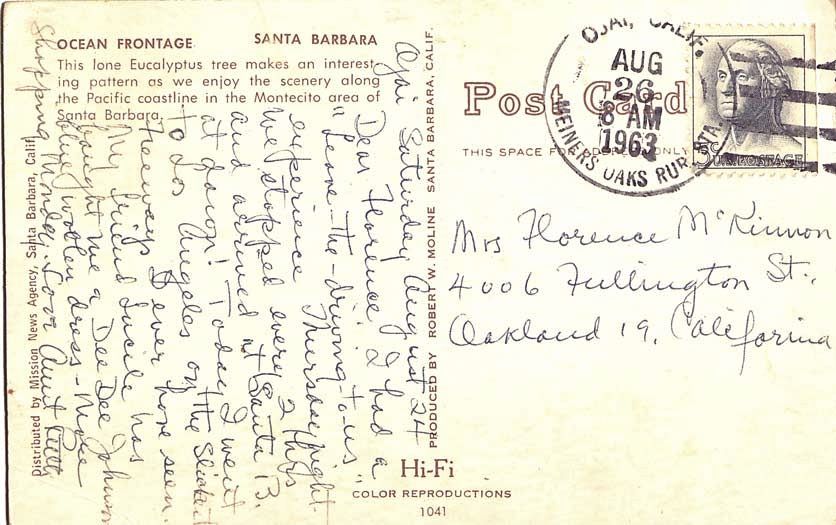 OCEAN FRONTAGE SANTA BARBARA
This lone Eucalyptus tree makes an interest-
ing pattern as we enjoy the scenery along
the Pacific coastline in the Montecito area of
Santa Barbara.
Ojai Saturday August 24
Dear Florence I had a
"Leave-the-driving-to-us"
experience Thursday night.
We stopped every 2 hrs
and arrived at Santa B.
at dawn! Today I went
to Los Angeles on the Slickest
Freeways I ever have seen.
My friend Lucile has
bought me a Dee Dee Johnson
blue woolen dress - More
Shopping Monday. Love Aunt
Distributed by Mission News Agency, Santa Barbara, Calif.
PRODUCED BY ROBERT W. MOLINE SANTA BARBARA, CALIF.
Hi-Fi
COLOR REPRODUCTIONS
1041
Post Card
THIS SPACE FOR ADDRESS ONLY
OJAI, CALIF.
AUG
26
8 AM
1963
MEINERS OAKS RUR. STA.
5c U.S. POSTAGE
Mrs Florence McKinnon
4006 Fullington St.,
Oakland 19, California